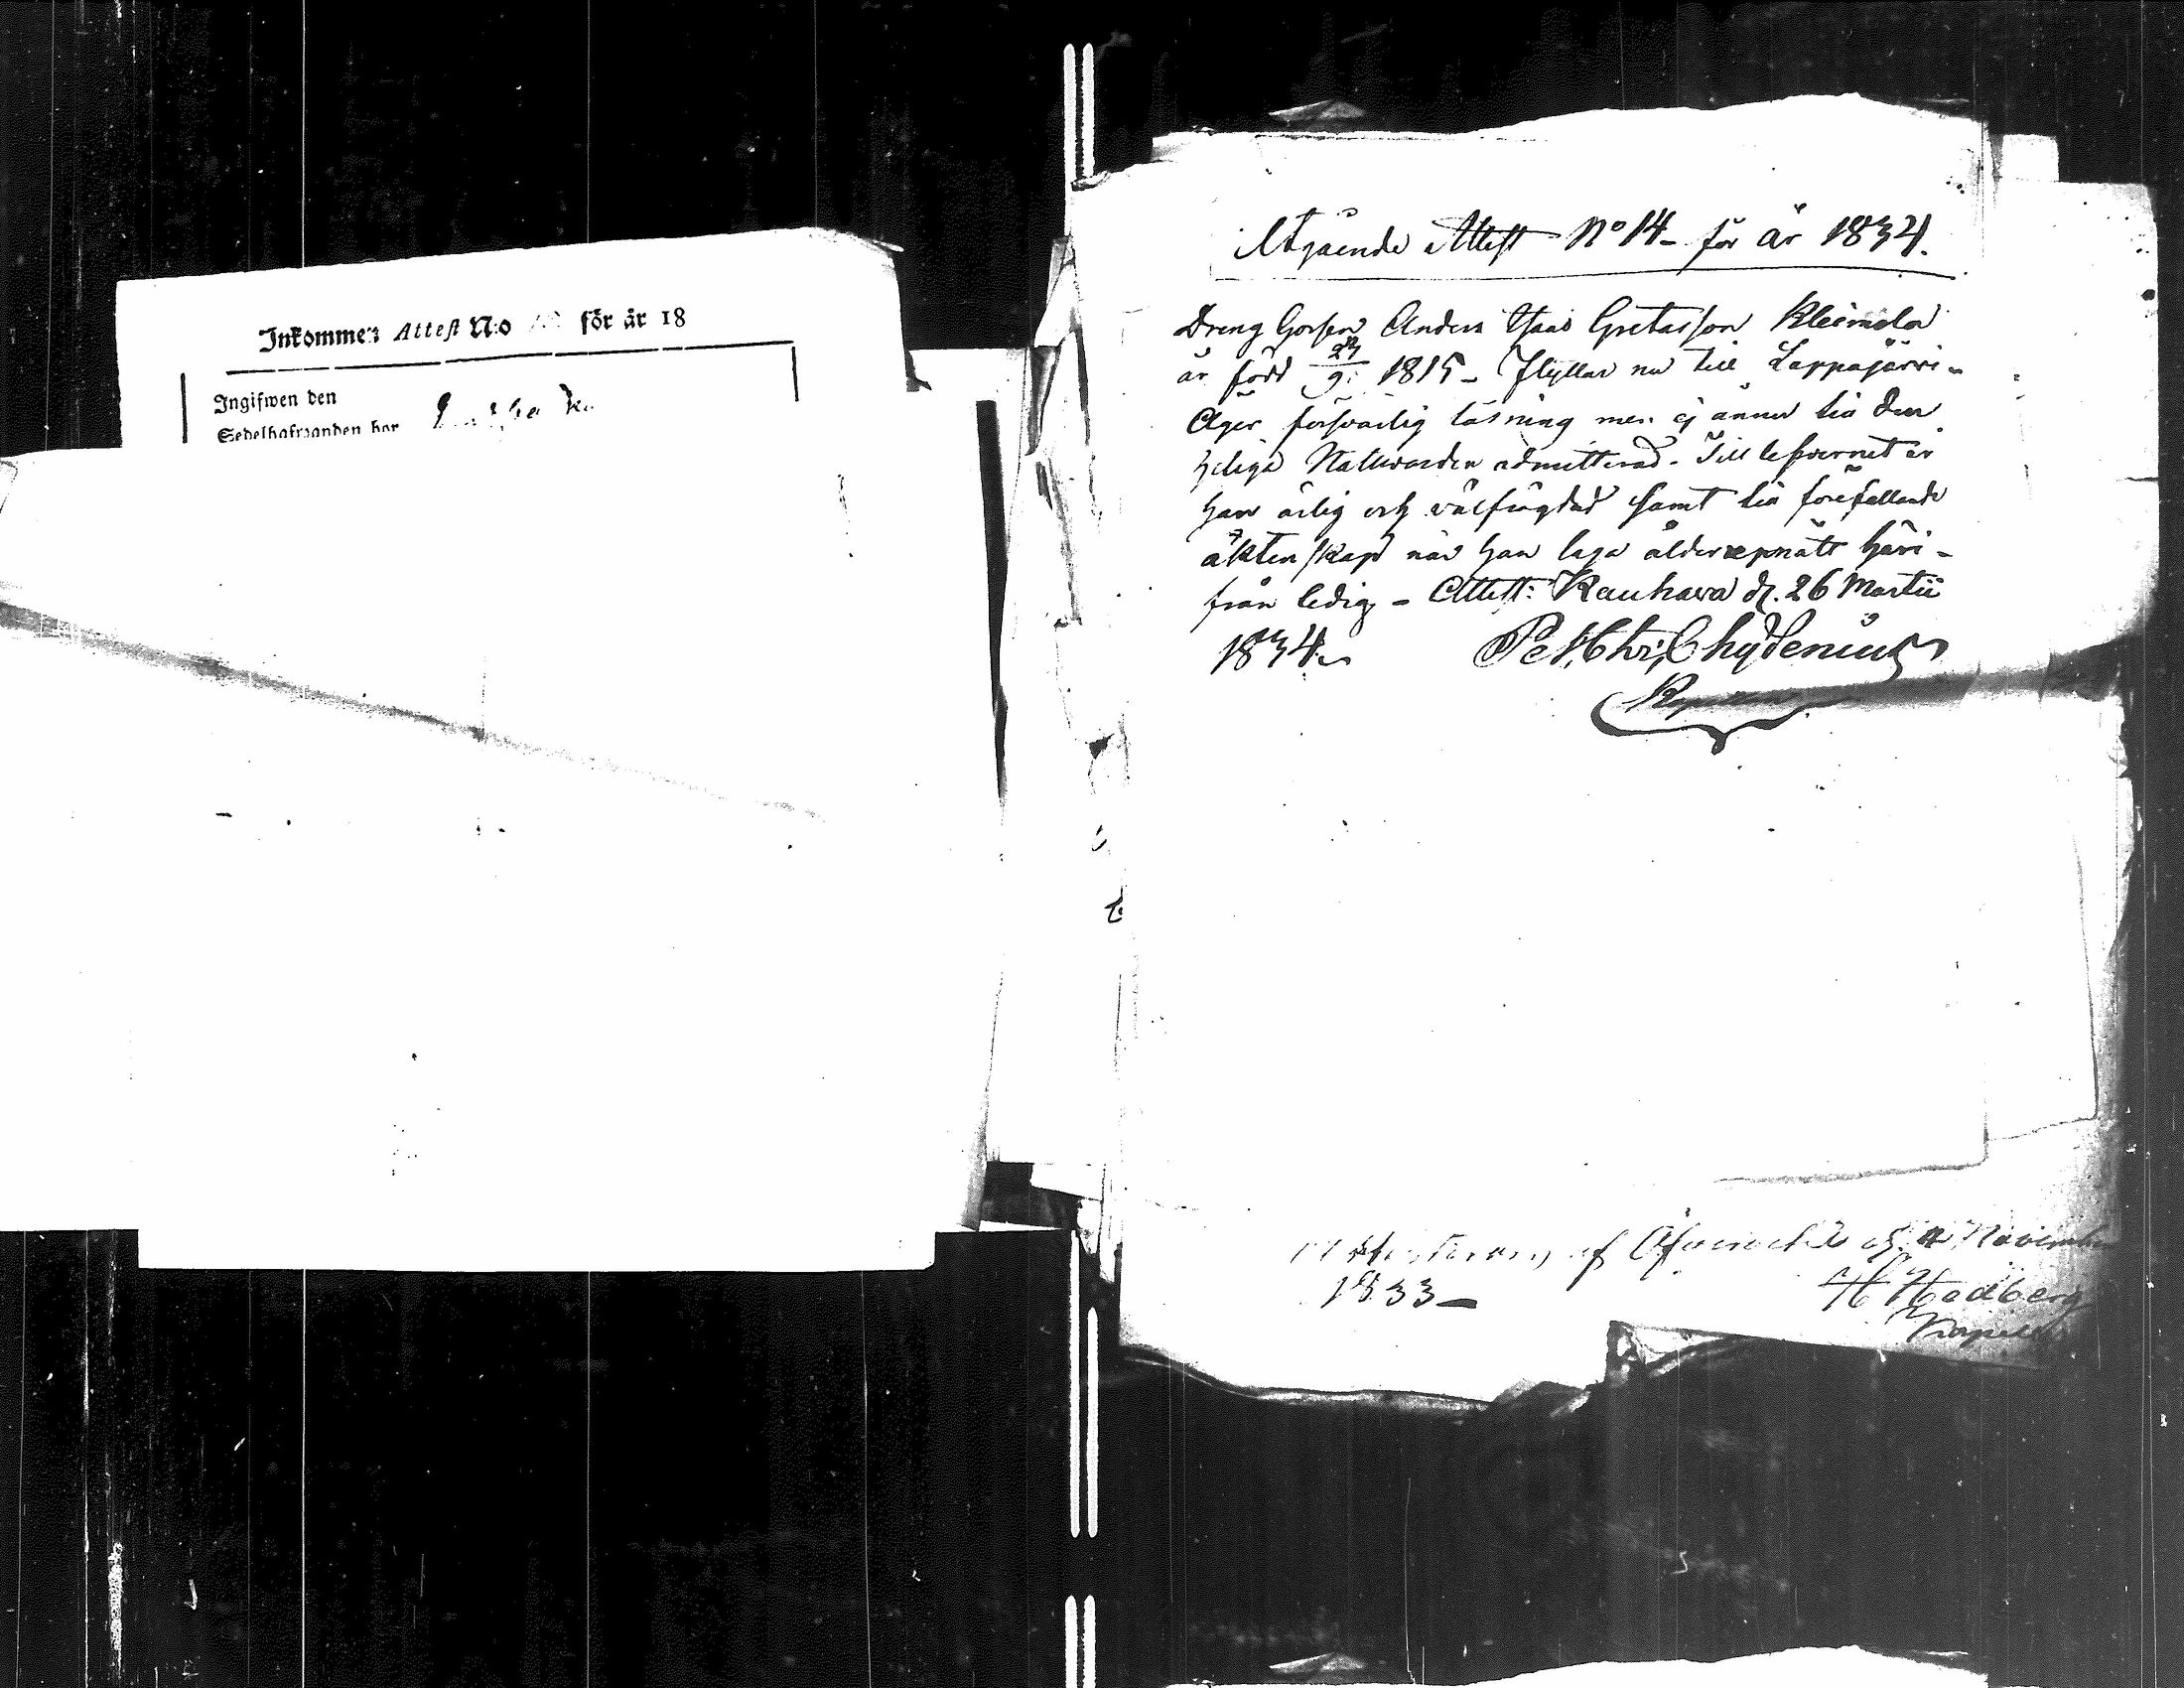 Inkommen Attest N:o för år 18
Ingifwen den
Sedelhafwanden har
Utgående Attest No 14 – för år 1834.
Dreng Gossen Anders Isaac Gretasson Kleimola
är född 23/9 1815 – Flyttar nu till Lappajärvi –
Äger försvarlig läsning men ej ännu till den
heliga Nattvarden admitterad – Till lefvernet är
han ärlig och välfrägdad samt till förefallande
äktenskap när han laga ålder uppnått häri-
från ledig – Attest: Kauhava d. 26 Martii
1834 – Pet. Chr. Chydenius
Kapellan
af d. November
1833 – H Hedberg
Kapell